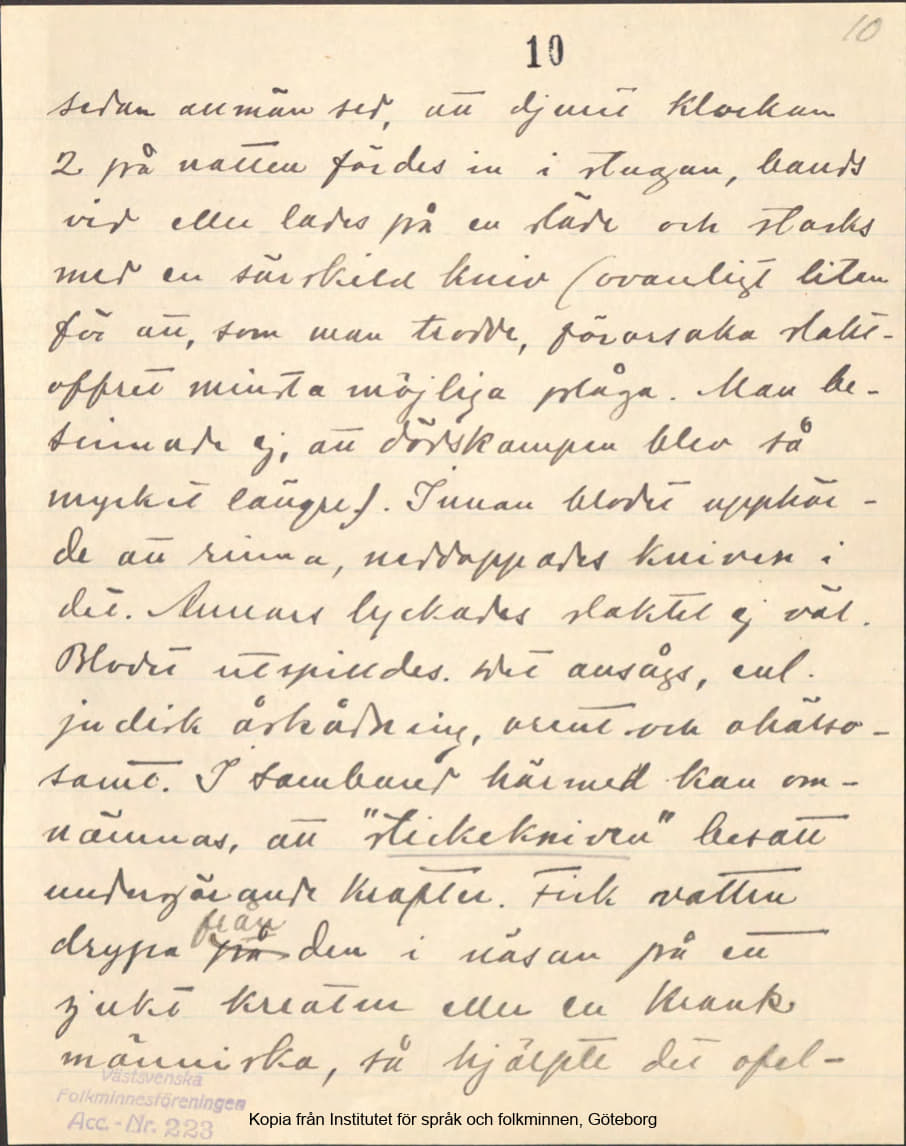 10
10
sedan allmän sed, att djuret klockan
2 på natten fördes in i stugan, bands
vid eller lades på en släde och stacks
med en särskild kniv (ovanligt liten
för att, som man trodde, förorsaka slakt-
offret minsta möjliga plåga. Man be-
sinnade ej, att dödskampen blev så
mycket längre). Innan blodet upphör-
de att rinna, neddoppades kniven i
det. Annars lyckades slaktet ej väl.
Blodet utspilldes. Det ansågs, enl.
judisk åskådning, orent och ohälso-
samt. I samband härmed kan om-
nämnas, att "stickekniven" besatt
undergörande krafter. Fick vatten
från
drypa på den i näsan på ett
sjukt kreatur eller en krank
människa, så hjälpte det ofel-
Västsvenska
Folkminnesföreningen
Acc.-Nr. 223
Kopia från Institutet för språk och folkminnen, Göteborg